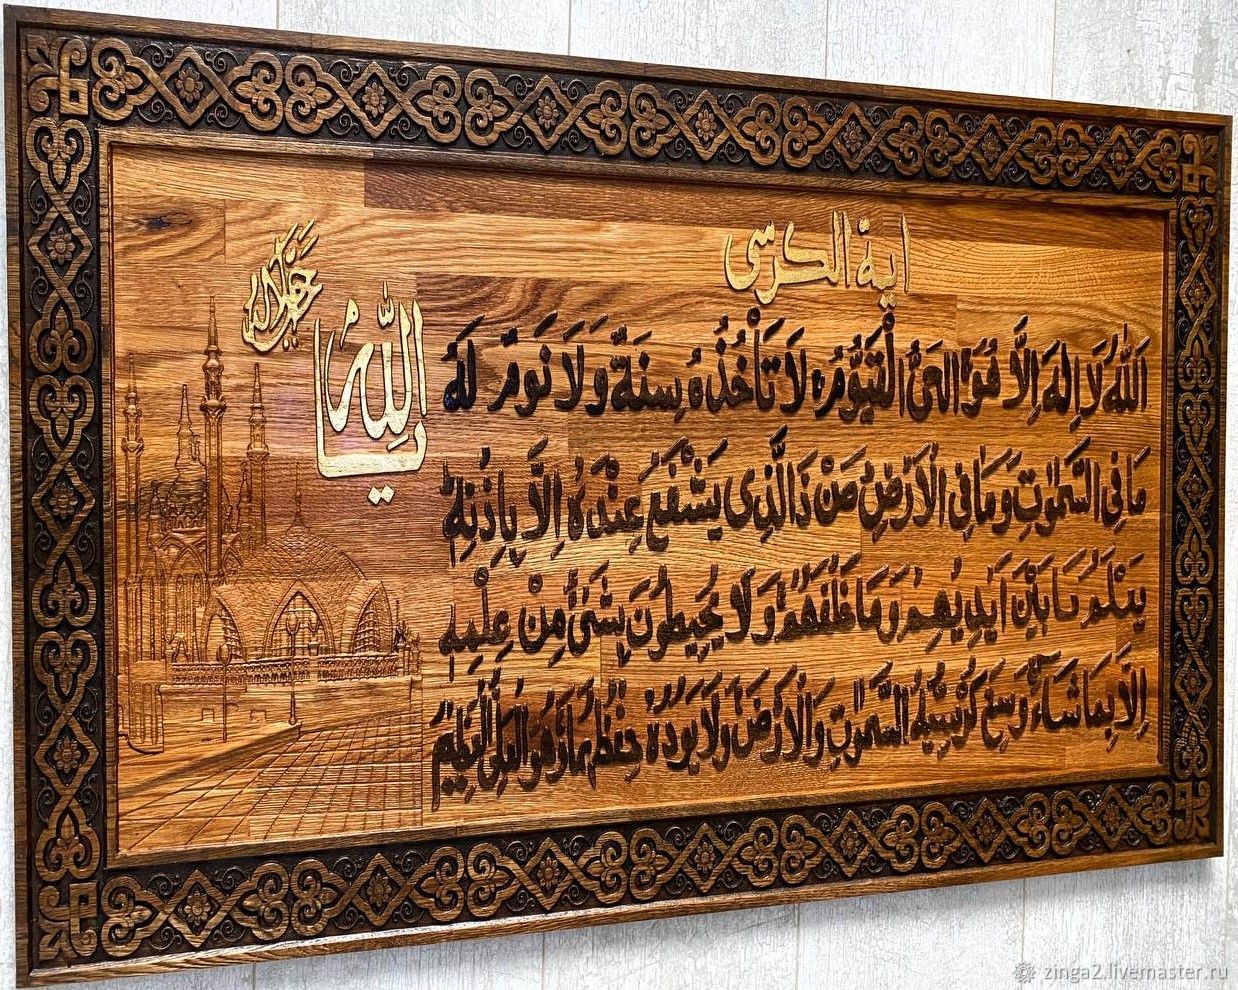 اية الكرسى
الله لَا اِلٰهَ اِلَّا هُوَ الحَىُّ الْقَيُّوْمُ لَا تَأْخُذُهُ سِنَةٌ وَلَا نَوْمٌ لَهُ
مَا فِى السَّمٰوٰتِ وَمَا فِى الْاَرْضِ مَنْ ذَا الَّذِى يَشْفَعُ عِنْدَهُ اِلَّا بِاِذْنِهٖ
يَعْلَمُ مَا بَيْنَ اَيْدِيْهِمْ وَمَا خَلْفَهُمْ وَلَا يُحِيْطُوْنَ بِشَىْءٍ مِّنْ عِلْمِهٖ
اِلَّا بِمَا شَاءَ وَسِعَ كُرْسِيُّهُ السَّمٰوٰتِ وَالْاَرْضَ وَلَا يَئُوْدُهُ حِفْظُهُمَا وَهُوَ الْعَلِىُّ الْعَظِيْمُ
يا الله
جل جلاله
zinga2.livemaster.ru